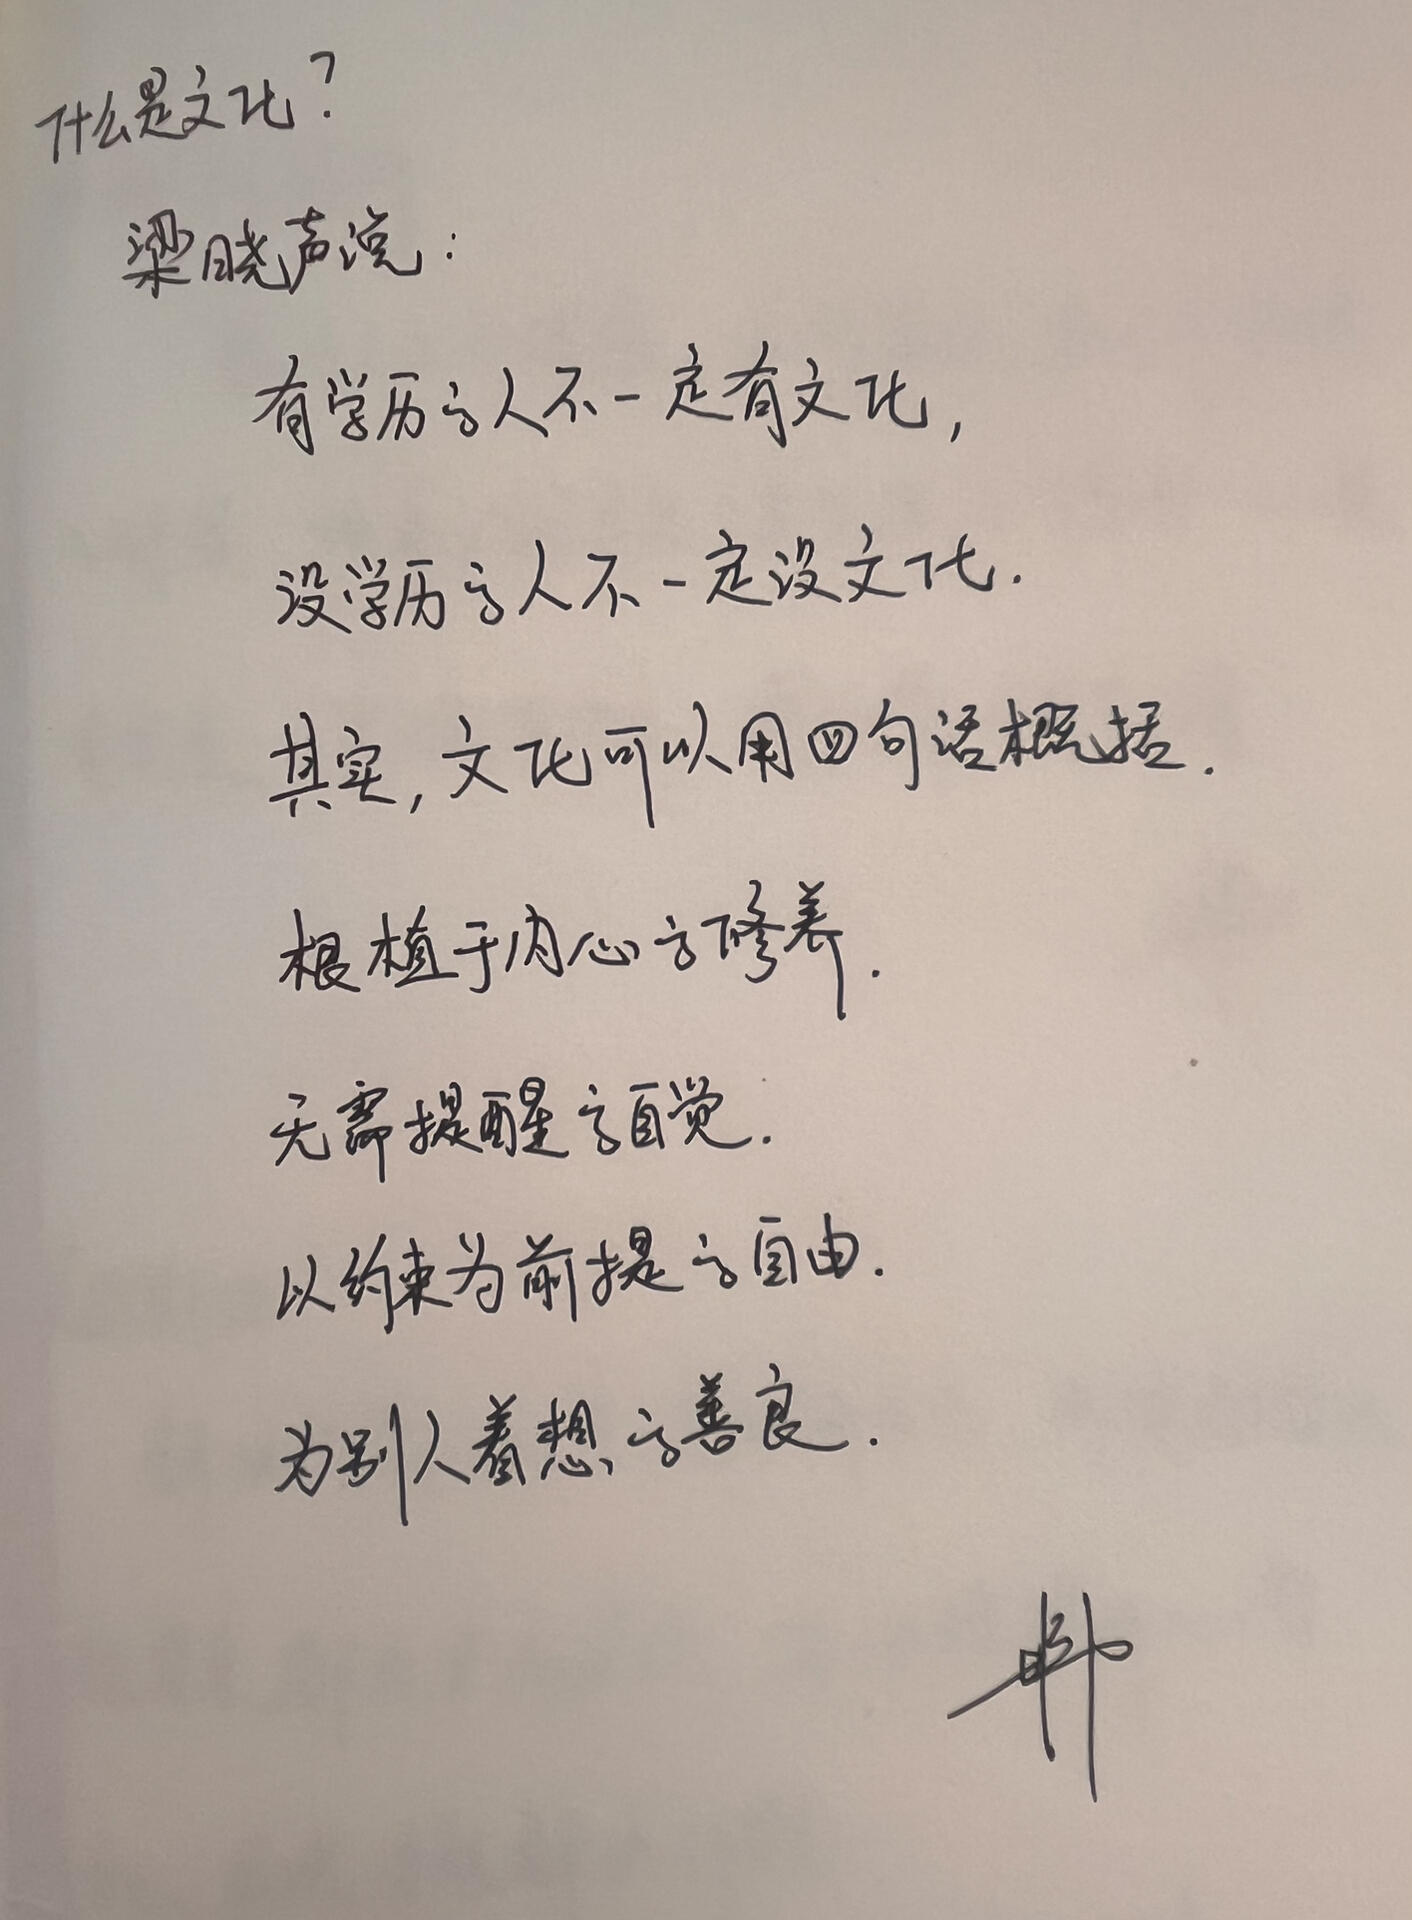 什么是文化?
梁晓声说:
有学历的人不一定有文化,
没学历的人不一定没文化.
其实,文化可以用四句话概括.
根植于内心的修养.
无需提醒的自觉.
以约束为前提的自由.
为别人着想的善良.